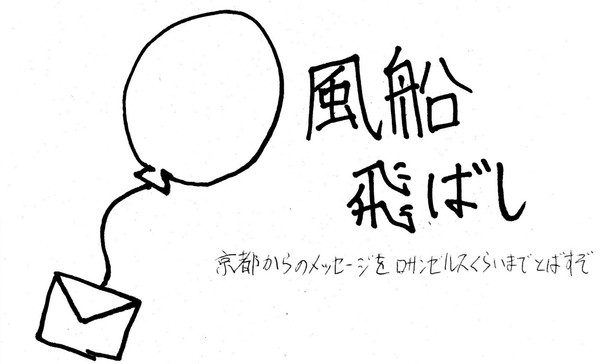 風船
飛ばし
京都からのメッセージをロサンゼルスくらいまでとばすぞ